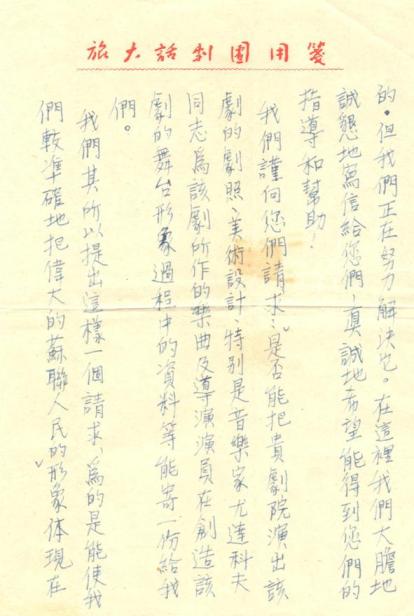 旅大話剧团用箋
的。但我們正在努力解決它。在這裡我們大膽地
誠懇地寫信給您們，真誠地希望能得到您們的
指導和幫助！
我們謹向您們請求：是否能把貴劇院演出該
劇的劇照、美術設計、特別是音樂家尤達科夫
同志為該劇所作的樂曲及導演演員在創造該
劇的舞台形象過程中的資料等能寄一份給我
們。
我們其所以提出這樣一個請求，為的是能使我
們較準確地把偉大的蘇聯人民的形象体現在